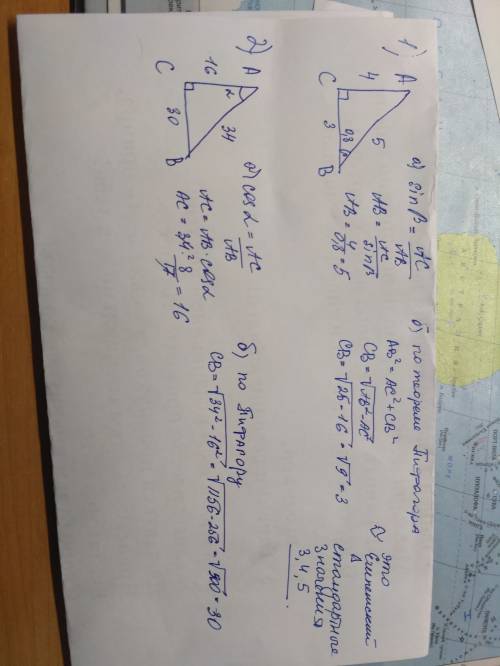 1)
A
4
5
C
3
0,8
β
B
а) sinβ = AC/AB
AB = AC/sinβ
AB = 4/0,8 = 5
б) по теореме Пифагора
AB² = AC² + CB²
CB = √AB² - AC²
CB = √25 - 16 = √9 = 3
это
Египетский
Δ
стандартные
значения
3, 4, 5
2)
A
16
α
34
C
30
B
а) cosα = AC/AB
AC = AB · cosα
AC = 34 · 8/17 = 16
б) по Пифагору
CB = √34² - 16² = √1156 - 256 = √900 = 30